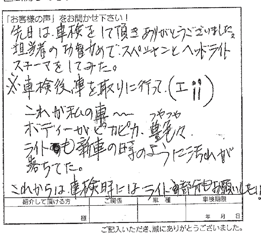 「お客様の声」をお聞かせ下さい！
先日は、車検をして頂きありがとうございました。
担当者の功名がめで、スペシャンとヘッドライト
スチーマをしてみた。
※車検後、車を取りに行って、(工 ii)
これが私の車～～
ボディーがピカピカ、つやつや
ライトも新車の時のように汚れが
落ちてた。
これからは、車検時にはライト部分もお願いしたい
紹介して頂ける方 ご関係 車種 車検期限
様 年 月 日
ご記入いただき、誠にありがとうございました。